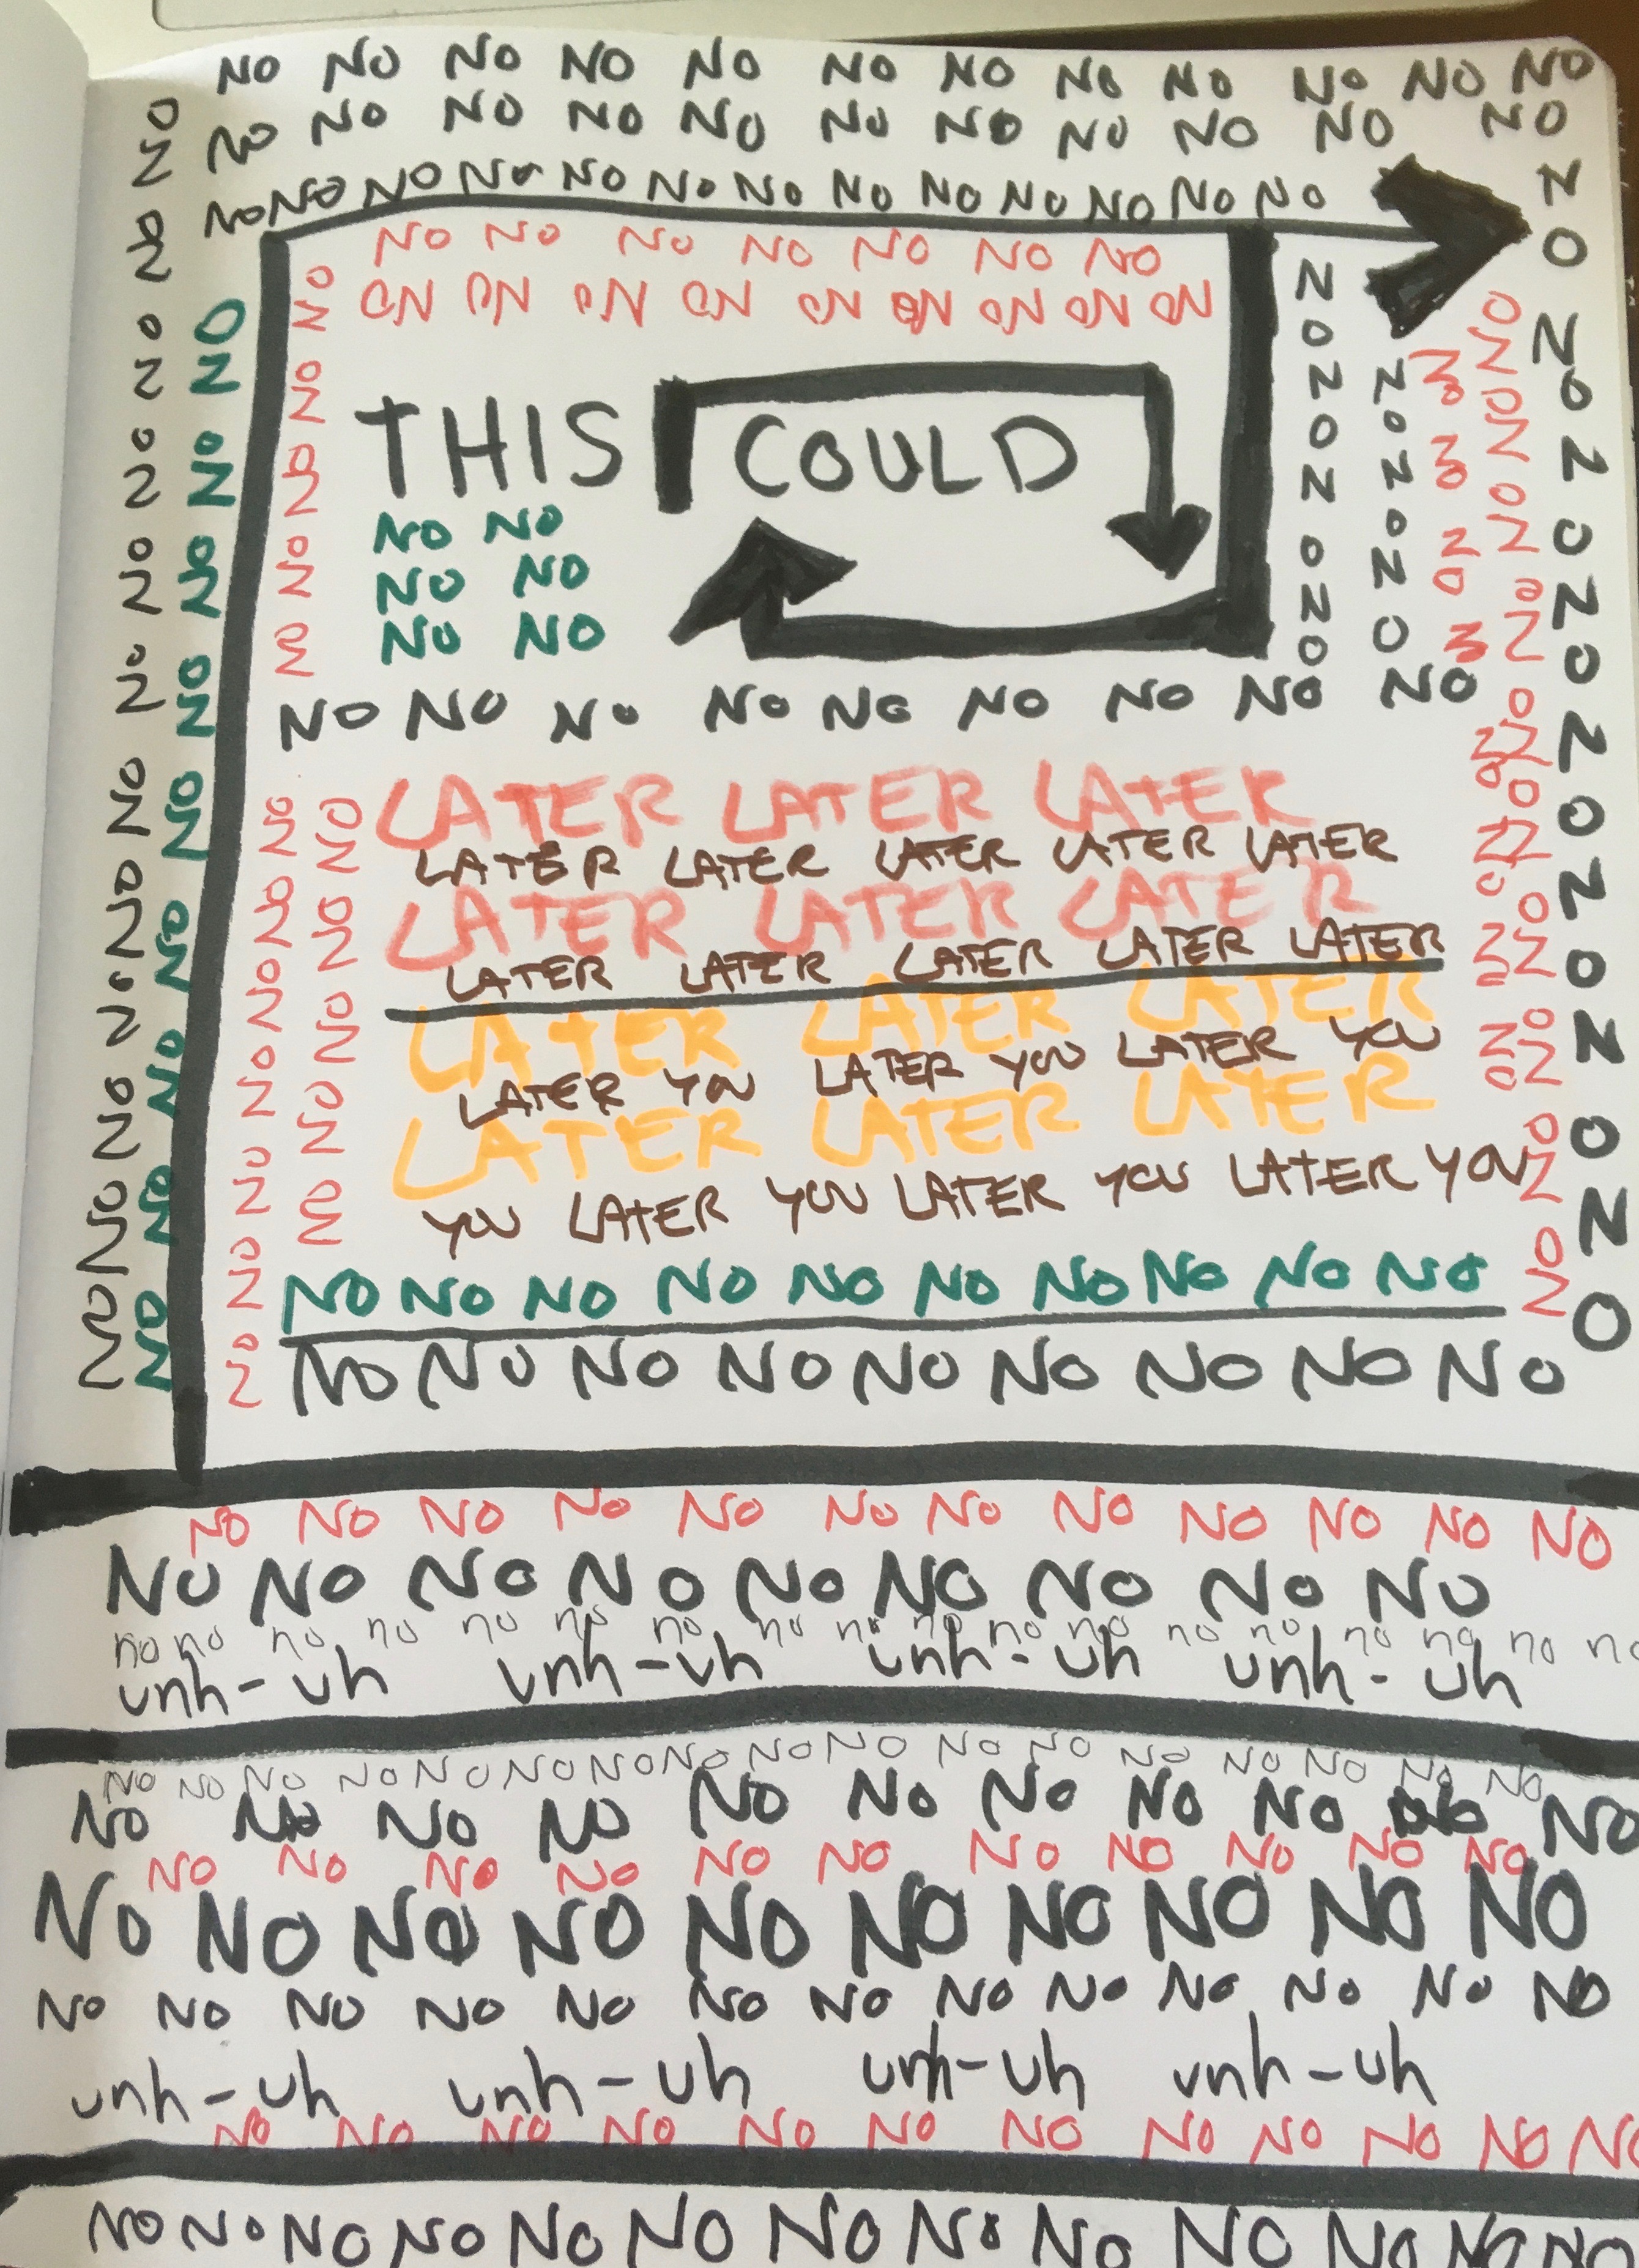 NO NO NO NO NO NO NO NO NO NO NO NO
NO NO NO NO NO NO NO NO NO NO NO
NO NO NO NO NO NO NO NO NO NO NO NO NO
NO NO NO NO NO NO NO
NO NO NO NO NO NO NO NO NO
THIS COULD
NO NO
NO NO
NO NO
NO NO NO NO NO NO NO NO NO
LATER LATER LATER
LATER LATER LATER LATER LATER
LATER LATER LATER
LATER LATER LATER LATER LATER
LATER LATER LATER
LATER YOU LATER YOU LATER YOU
LATER LATER LATER
YOU LATER YOU LATER YOU LATER YOU
NO NO NO NO NO NO NO NO NO NO
NO NO NO NO NO NO NO NO NO
NO NO NO NO NO NO NO NO NO NO NO NO
NO NO NO NO NO NO NO NO NO
no no no no no no no no no no no no no no no no no
unh-uh unh-uh unh-uh unh-uh
NO NO NO NO NO NO NO NO NO NO NO NO NO NO NO NO
NO NO NO NO NO NO NO NO NO NO NO
NO NO NO NO NO NO NO NO NO NO NO
NO NO NO NO NO NO NO NO NO NO
NO NO NO NO NO NO NO NO NO NO NO NO NO
unh-uh unh-uh unh-uh unh-uh
NO NO NO NO NO NO NO NO NO NO NO NO
NO NO NO NO NO NO NO NO NO NO NO NO NO
NO NO NO NO NO NO NO NO NO NO NO NO
NO NO NO NO NO NO NO NO NO NO
NO NO NO NO NO
NO NO NO NO NO NO NO
NO NO NO NO NO
NO NO NO NO
NO NO NO
NO NO NO NO
NO NO NO NO NO NO NO NO NO NO
NO NO NO NO NO NO NO NO